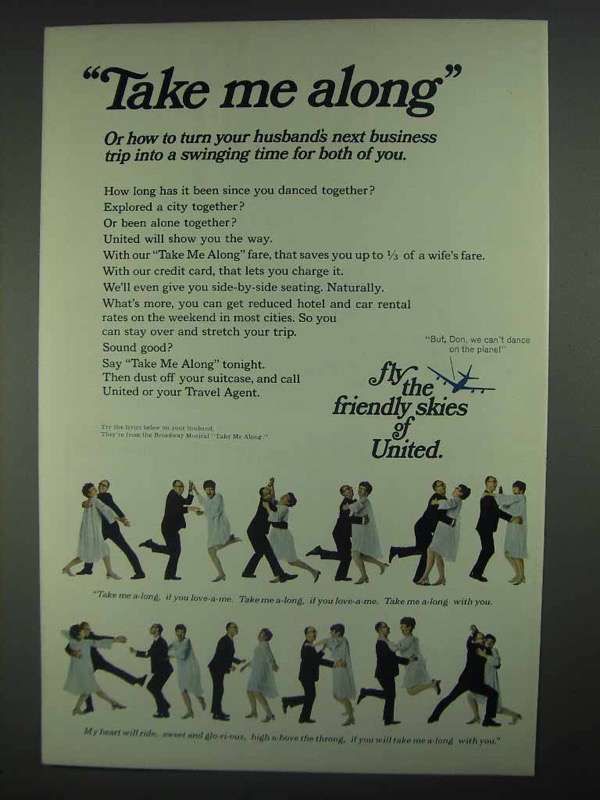 "Take me along"
Or how to turn your husband's next business
trip into a swinging time for both of you.
How long has it been since you danced together?
Explored a city together?
Or been alone together?
United will show you the way.
With our "Take Me Along" fare, that saves you up to 1/3 of a wife's fare.
With our credit card, that lets you charge it.
We'll even give you side-by-side seating. Naturally.
What's more, you can get reduced hotel and car rental
rates on the weekend in most cities. So you
can stay over and stretch your trip.
Sound good?
Say "Take Me Along" tonight.
Then dust off your suitcase, and call
United or your Travel Agent.
"But, Don, we can't dance
on the plane!"
fly
the
friendly skies
of
United.
Try the lyrics below on your husband.
They're from the Broadway Musical "Take Me Along."
"Take me a-long, if you love-a-me. Take me a-long, if you love-a-me. Take me a-long with you.
My heart will ride, sweet and glo-ri-ous, high a-bove the throng, if you will take me a-long with you."